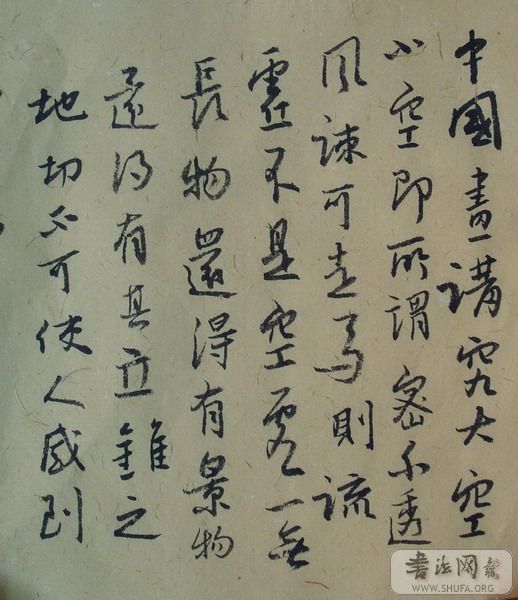 中國畫講究大空
小空即所謂密不透
风疎可走马則疏
虛不是空虛一無
長物還得有景物
還得有其立錐之
地切不可使人感到
书法网
WWW.SHUFA.ORG